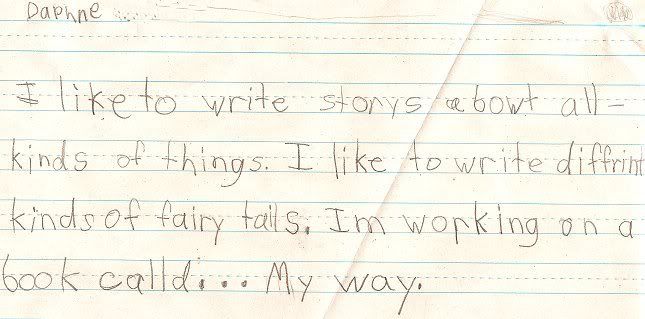 Daphne
I like to write storys abowt all-
kinds of things. I like to write diffrint
kinds of fairy tails. Im working on a
book calld... My way.